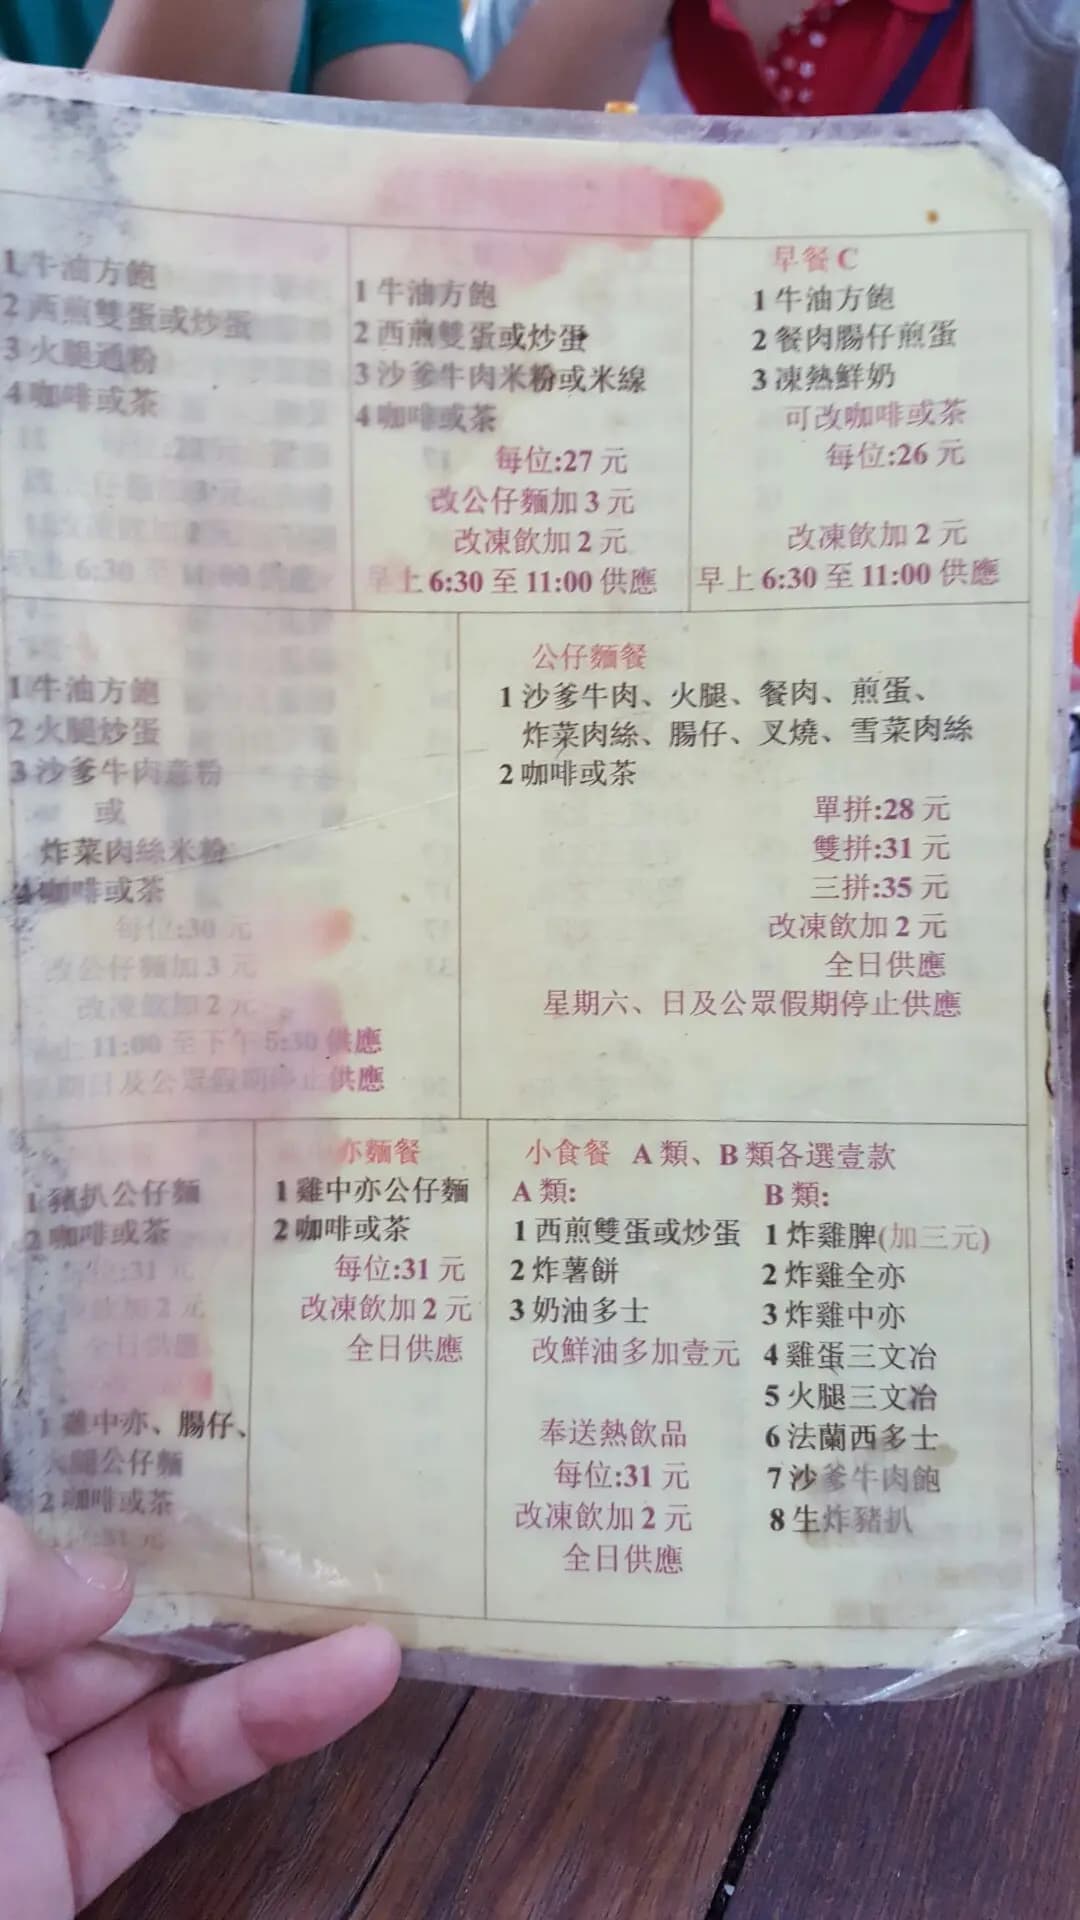 1 牛油方飽
2 西煎雙蛋或炒蛋
3 火腿通粉
4 咖啡或茶
6:30 至 11:00 供應
1 牛油方飽
2 西煎雙蛋或炒蛋
3 沙爹牛肉米粉或米線
4 咖啡或茶
每位:27 元
改公仔麵加 3 元
改凍飲加 2 元
早上 6:30 至 11:00 供應
早餐 C
1 牛油方飽
2 餐肉腸仔煎蛋
3 凍熱鮮奶
可改咖啡或茶
每位:26 元
改凍飲加 2 元
早上 6:30 至 11:00 供應
1 牛油方飽
2 火腿炒蛋
3 沙爹牛肉意粉
或
炸菜肉絲米粉
4 咖啡或茶
每位:30 元
改公仔麵加 3 元
改凍飲加 2 元
上 11:00 至下午 5:30 供應
期日及公眾假期停止供應
公仔麵餐
1 沙爹牛肉、火腿、餐肉、煎蛋、
炸菜肉絲、腸仔、叉燒、雪菜肉絲
2 咖啡或茶
單拼:28 元
雙拼:31 元
三拼:35 元
改凍飲加 2 元
全日供應
星期六、日及公眾假期停止供應
1 豬扒公仔麵
2 咖啡或茶
每位:31 元
凍飲加 2 元
全日供應
1 雞中亦、腸仔、
火腿公仔麵
2 咖啡或茶
亦麵餐
1 雞中亦公仔麵
2 咖啡或茶
每位:31 元
改凍飲加 2 元
全日供應
小食餐 A 類、B 類各選壹款
A 類:
1 西煎雙蛋或炒蛋
2 炸薯餅
3 奶油多士
改鮮油多加壹元
奉送熱飲品
每位:31 元
改凍飲加 2 元
全日供應
B 類:
1 炸雞脾(加三元)
2 炸雞全亦
3 炸雞中亦
4 雞蛋三文冶
5 火腿三文冶
6 法蘭西多士
7 沙爹牛肉飽
8 生炸豬扒